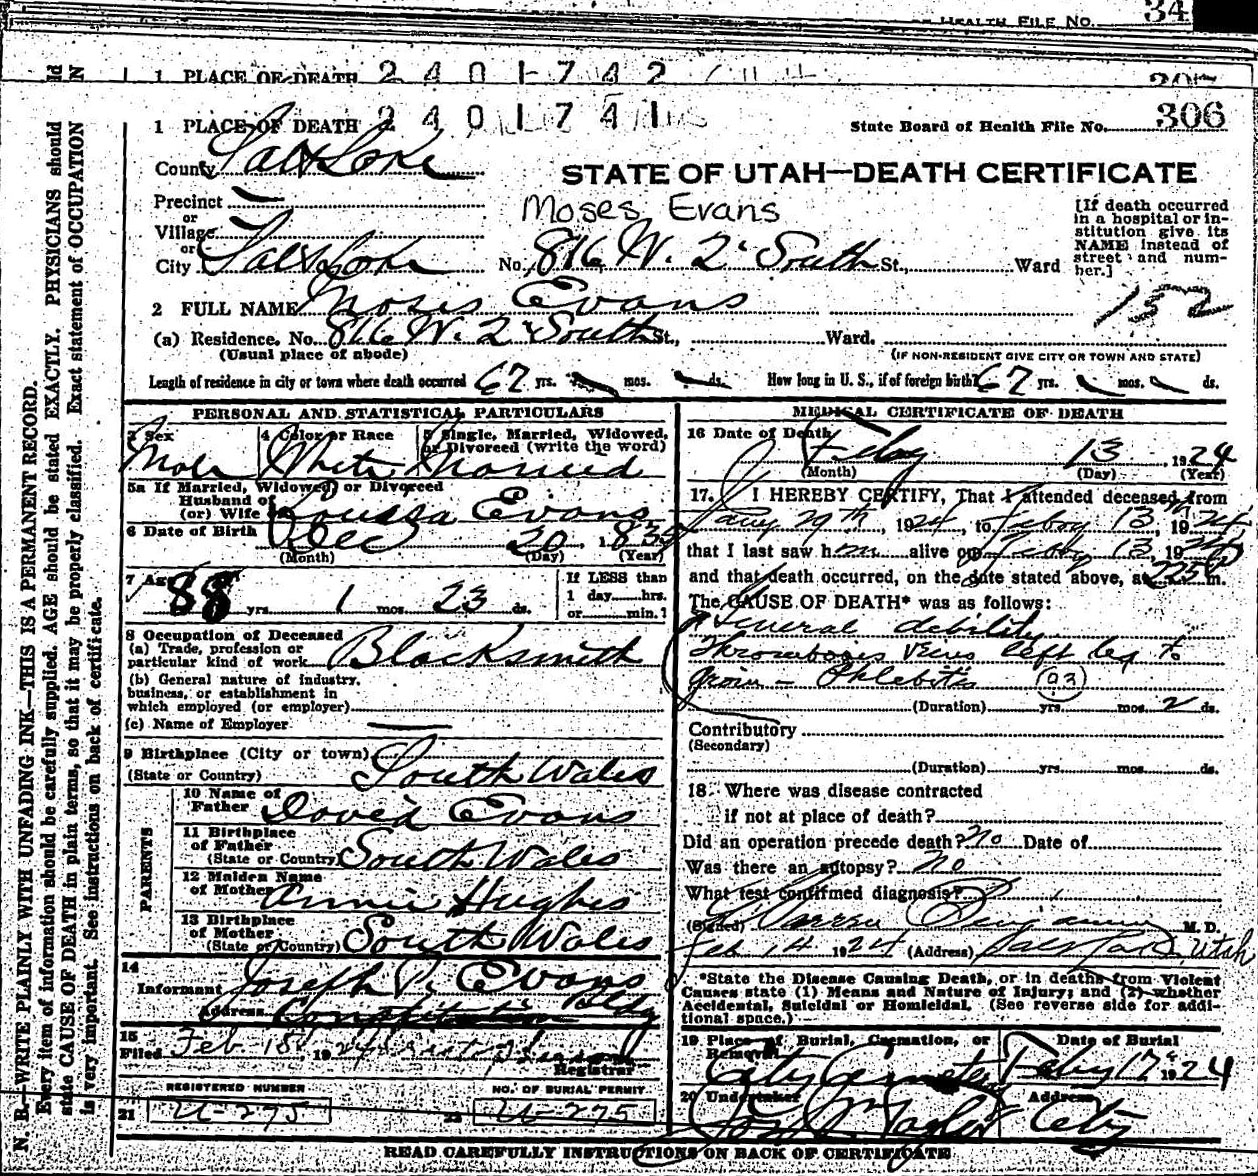 HEALTH FILE NO. 34
1 PLACE OF DEATH 2401742
307
1 PLACE OF DEATH 2401741
State Board of Health File No. 306
County Salt Lake
STATE OF UTAH—DEATH CERTIFICATE
Precinct
or
Village
or
City Salt Lake
Moses Evans
No. 816 W. 2 South St., Ward
[If death occurred
in a hospital or in-
stitution give its
NAME instead of
street and num-
ber.]
2 FULL NAME Moses Evans
152
(a) Residence. No. 816 W. 2 South St., Ward.
(Usual place of abode) (IF NON-RESIDENT GIVE CITY OR TOWN AND STATE)
Length of residence in city or town where death occurred 67 yrs. mos. ds. How long in U. S., if of foreign birth? 67 yrs. mos. ds.
PERSONAL AND STATISTICAL PARTICULARS
3 Sex 4 Color or Race 5 Single, Married, Widowed,
or Divorced (write the word)
Male White Married
5a If Married, Widowed, or Divorced
Husband of
(or) Wife of Evans
6 Date of Birth Dec 20 1835
(Month) (Day) (Year)
7 Age 88 yrs. 1 mos. 23 ds.
If LESS than
1 day hrs.
or min.?
8 Occupation of Deceased
(a) Trade, profession or
particular kind of work Blacksmith
(b) General nature of industry,
business, or establishment in
which employed (or employer)
(c) Name of Employer
9 Birthplace (City or town)
(State or Country) South Wales
PARENTS
10 Name of
Father David Evans
11 Birthplace
of Father
(State or Country) South Wales
12 Maiden Name
of Mother Annie Hughes
13 Birthplace
of Mother
(State or Country) South Wales
14
Informant Joseph P. Evans
Address Constitution Bldg
15
Filed Feb 18 1924
Registrar
REGISTERED NUMBER NO. OF BURIAL PERMIT
21 U-275 22 U-275
MEDICAL CERTIFICATE OF DEATH
16 Date of Death Feby 13 1924
(Month) (Day) (Year)
17. I HEREBY CERTIFY, That I attended deceased from
Jany 29th, 1924, to Feby 13th, 1924
that I last saw him alive on Feby 13, 1924
and that death occurred, on the date stated above, at m.
The CAUSE OF DEATH* was as follows:
General debility
Thromboses veins left leg to
groin - Phlebitis 93
(Duration) yrs. mos. 2 ds.
Contributory
(Secondary)
(Duration) yrs. mos. ds.
18 Where was disease contracted
if not at place of death?
Did an operation precede death? No Date of
Was there an autopsy? No
What test confirmed diagnosis?
(Signed) Warren Benjamin M. D.
Feb 14 1924 (Address) Salt Lake, Utah
*State the Disease Causing Death, or in deaths from Violent
Causes state (1) Means and Nature of Injury; and (2) whether
Accidental, Suicidal or Homicidal. (See reverse side for addi-
tional space.)
19 Place of Burial, Cremation, or
Removal Date of Burial
City Cemetery Feby 17 1924
20 Undertaker Address
Taylor City
READ CAREFULLY INSTRUCTIONS ON BACK OF CERTIFICATE
N. B.—WRITE PLAINLY WITH UNFADING INK—THIS IS A PERMANENT RECORD.
Every item of information should be carefully supplied. AGE should be stated EXACTLY. PHYSICIANS should
state CAUSE OF DEATH in plain terms, so that it may be properly classified. Exact statement of OCCUPATION
is very important. See instructions on back of certificate.